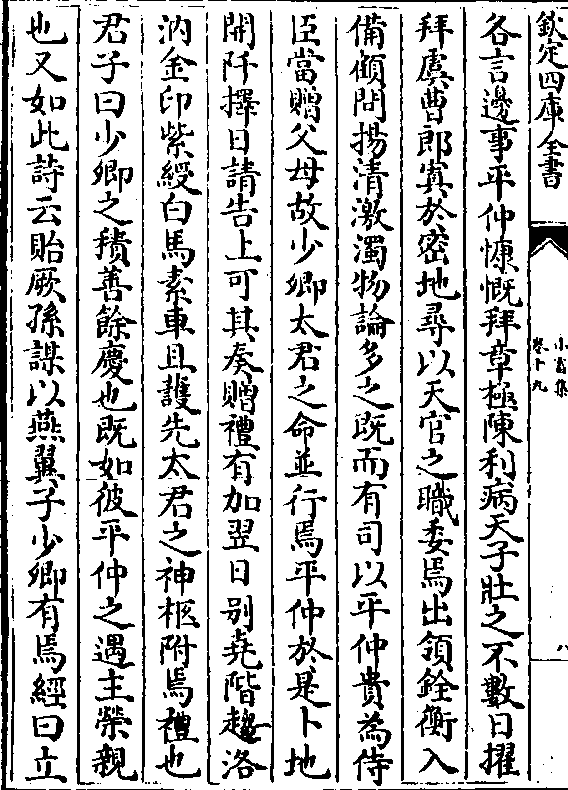 欽定四庫全書
小畜集
卷十九
八
各言邊事平仲慷慨拜章極陳利病天子壯之不數日擢
拜虞曹郎寘於密地尋以天官之職委焉出領銓衡入
備顧問揚清激濁物論多之既而有司以平仲貴為侍
臣當贈父母故少卿太君之命並行焉平仲於是卜地
開阡擇日請告上可其奏贈禮有加翌日别堯階趨洛
汭金印紫綬白馬素車且護先太君之神柩附焉禮也
君子曰少卿之積善餘慶也既如彼平仲之遇主榮親
也又如此詩云貽厥孫謀以燕翼子少卿有焉經曰立